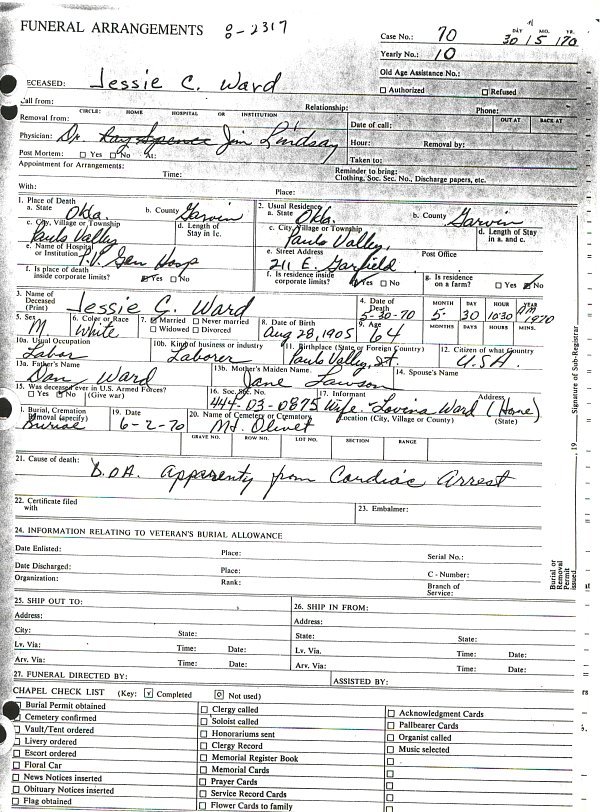 FUNERAL ARRANGEMENTS 0/0-2317
Case No.: 70
DAY MO. YR.
30 / 5 / 70
Yearly No.: 10
Old Age Assistance No.:
DECEASED: Jessie C. Ward
Authorized Refused
Call from: Relationship: Phone:
CIRCLE: HOME HOSPITAL OR INSTITUTION
Removal from: Date of call: OUT AT BACK AT
Physician: Dr. Ray Spence Jim Lindsay Hour: Removal by:
Post Mortem: Yes No At: Taken to:
Appointment for Arrangements: Time: Reminder to bring:
Clothing, Soc. Sec. No., Discharge papers, etc.
With: Place:
1. Place of Death
a. State Okla. b. County Garvin
c. City, Village or Township Pauls Valley d. Length of Stay in 1c.
e. Name of Hospital or Institution P.V. Gen Hosp
f. Is place of death inside corporate limits? Yes No
2. Usual Residence
a. State Okla. b. County Garvin
c. City, Village or Township Pauls Valley d. Length of Stay in a. and c.
e. Street Address 211 E. Garfield Post Office
f. Is residence inside corporate limits? Yes No g. Is residence on a farm? Yes No
3. Name of Deceased (Print) Jessie C. Ward
4. Date of Death 5-30-70
MONTH DAY HOUR YEAR
5- 30 10:30 PM 1970
5. Sex M 6. Color or Race White 7. Married Never married Widowed Divorced
8. Date of Birth Aug 28, 1905 9. Age 64 MONTHS DAYS HOURS MINS.
10a. Usual Occupation Labor 10b. Kind of business or industry Laborer
11. Birthplace (State or Foreign Country) Pauls Valley, I.T. 12. Citizen of what Country U.S.A.
13a. Father's Name Dan Ward 13b. Mother's Maiden Name Jane Lawson 14. Spouse's Name
15. Was deceased ever in U.S. Armed Forces? Yes No (Give war)
16. Soc. Sec. No. 444-03-0875 17. Informant Wife - Lovina Ward Address (Home)
Burial, Cremation Removal (specify) Burial 19. Date 6-2-70
20. Name of Cemetery or Crematory Mt. Olivet Location (City, Village or County) (State)
GRAVE NO. ROW NO. LOT NO. SECTION RANGE
21. Cause of death: D.O.A. Apparenty from Cardiac Arrest
22. Certificate filed with 23. Embalmer:
24. INFORMATION RELATING TO VETERAN'S BURIAL ALLOWANCE
Date Enlisted: Place: Serial No.:
Date Discharged: Place: C - Number:
Organization: Rank: Branch of Service:
25. SHIP OUT TO: 26. SHIP IN FROM:
Address: Address:
City: State: State: State:
Lv. Via: Time: Date: Lv. Via: Time: Date:
Arv. Via: Time: Date: Arv. Via: Time: Date:
27. FUNERAL DIRECTED BY: ASSISTED BY:
CHAPEL CHECK LIST (Key: Completed Not used)
Burial Permit obtained
Cemetery confirmed
Vault/Tent ordered
Livery ordered
Escort ordered
Floral Car
News Notices inserted
Obituary Notices inserted
Flag obtained
Clergy called
Soloist called
Honorariums sent
Clergy Record
Memorial Register Book
Memorial Cards
Prayer Cards
Service Record Cards
Flower Cards to family
Acknowledgment Cards
Pallbearer Cards
Organist called
Music selected
Burial or Removal Permit issued, 19 Signature of Sub-Registrar